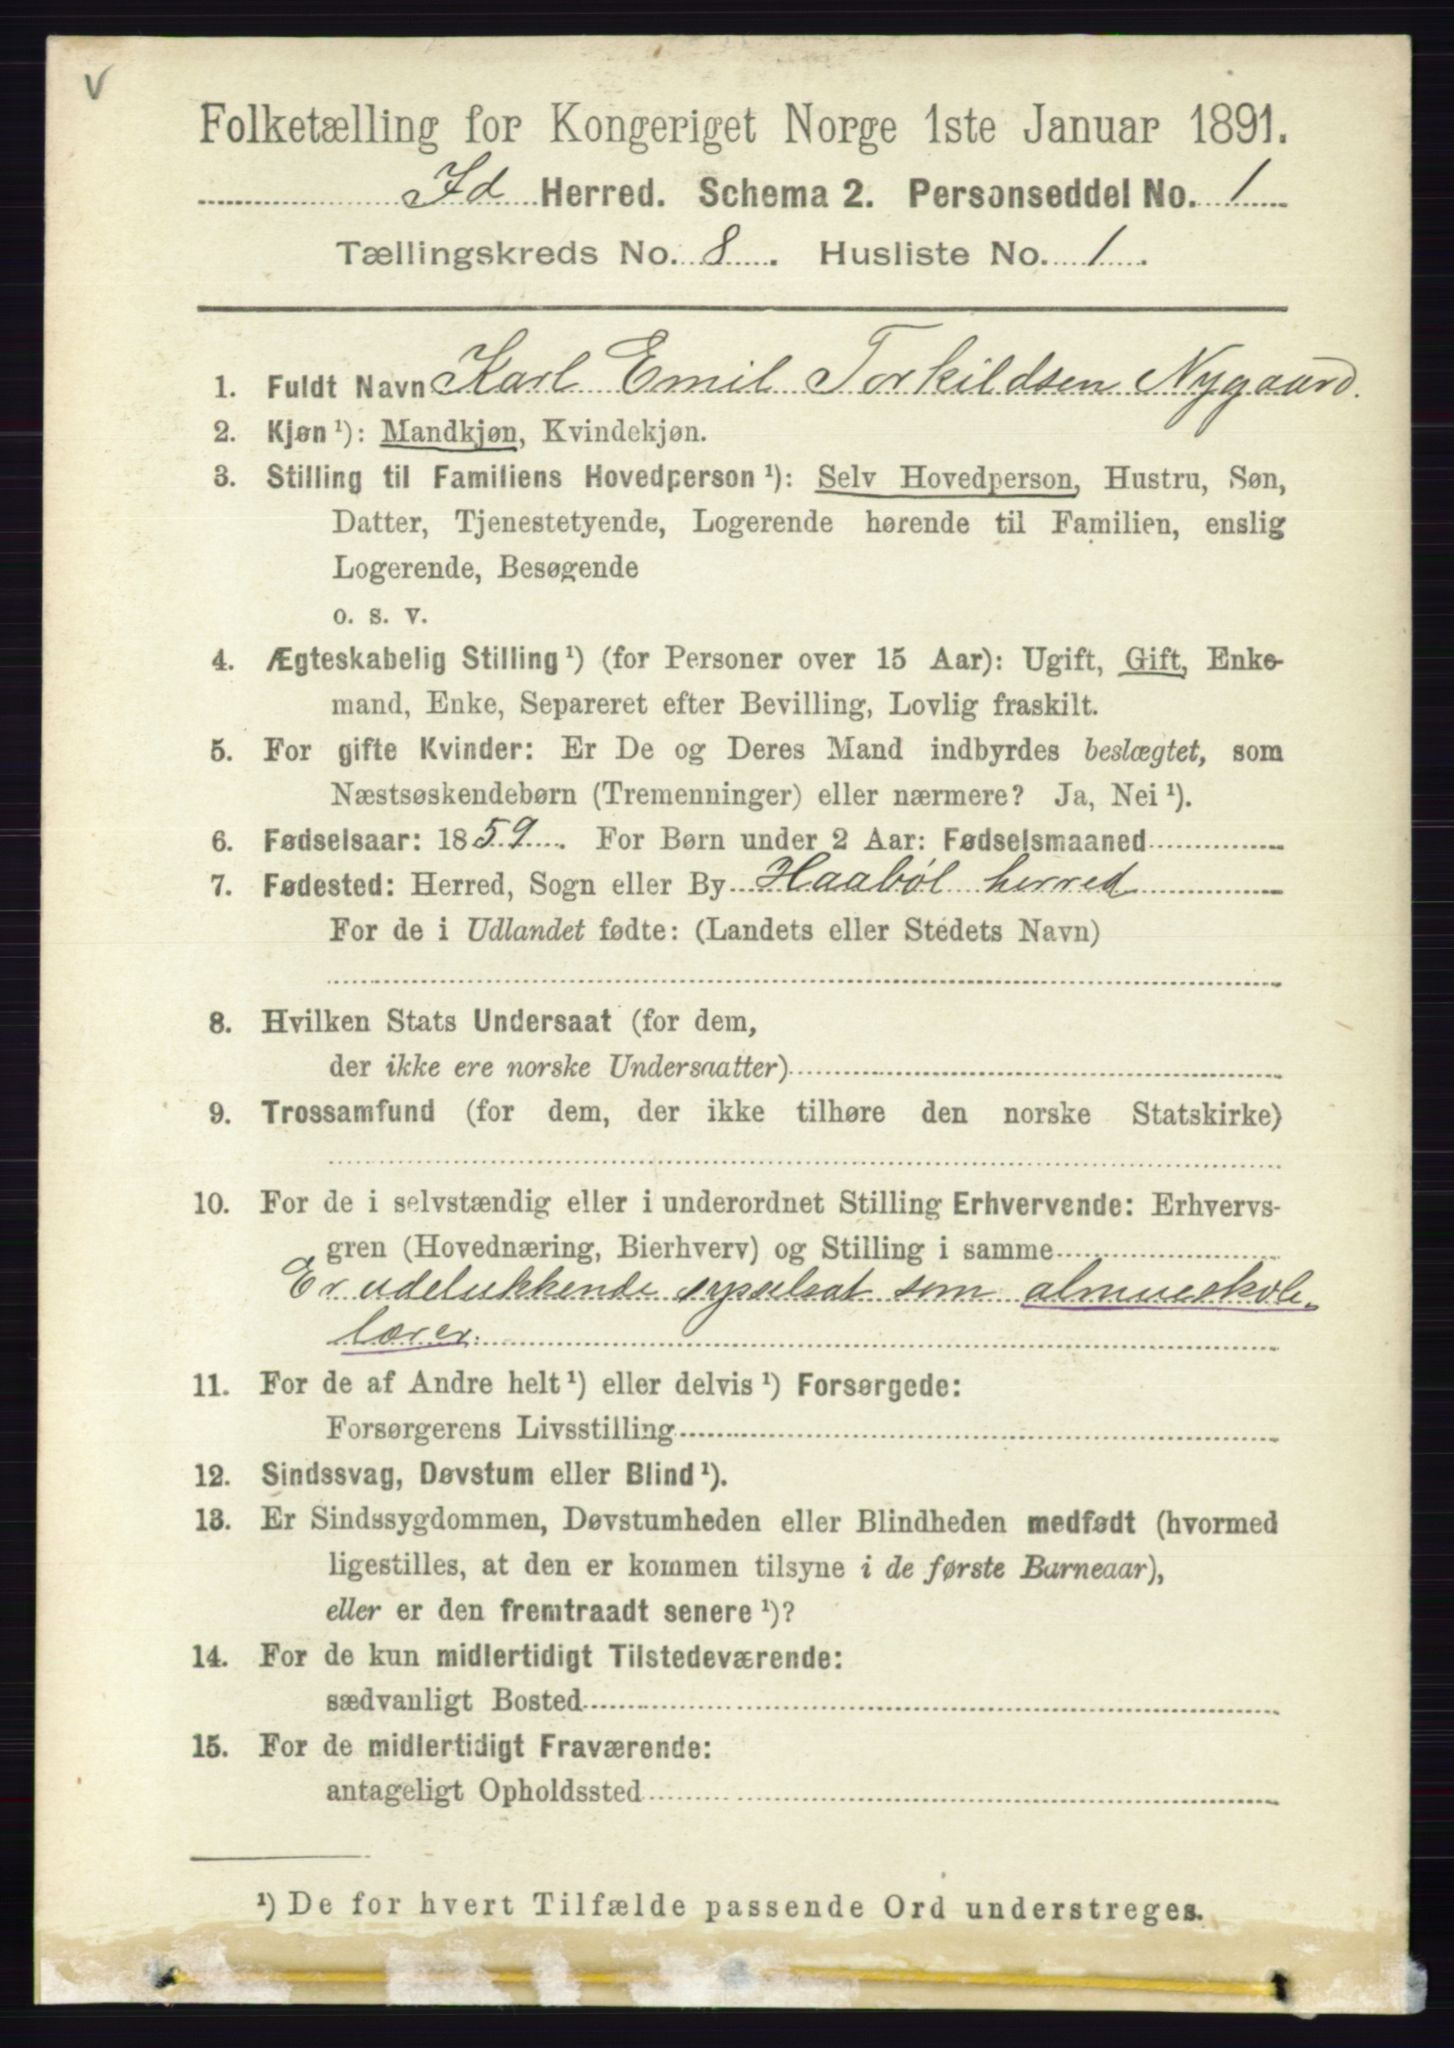 V
Folketælling for Kongeriget Norge 1ste Januar 1891.
Id Herred. Schema 2. Personseddel No. 1
Tællingskreds No. 8. Husliste No. 1.
1. Fuldt Navn Karl Emil Torkildsen Nygaard.
2. Kjøn ¹): Mandkjøn, Kvindekjøn.
3. Stilling til Familiens Hovedperson ¹): Selv Hovedperson, Hustru, Søn,
Datter, Tjenestetyende, Logerende hørende til Familien, enslig
Logerende, Besøgende
o. s. v.
4. Ægteskabelig Stilling ¹) (for Personer over 15 Aar): Ugift, Gift, Enke-
mand, Enke, Separeret efter Bevilling, Lovlig fraskilt.
5. For gifte Kvinder: Er De og Deres Mand indbyrdes beslægtet, som
Næstsøskendebørn (Tremenninger) eller nærmere? Ja, Nei ¹).
6. Fødselsaar: 1859. For Børn under 2 Aar: Fødselsmaaned
7. Fødested: Herred, Sogn eller By Haabøl herred
For de i Udlandet fødte: (Landets eller Stedets Navn)
8. Hvilken Stats Undersaat (for dem,
der ikke ere norske Undersaatter)
9. Trossamfund (for dem, der ikke tilhøre den norske Statskirke)
10. For de i selvstændig eller i underordnet Stilling Erhvervende: Erhvervs-
gren (Hovednæring, Bierhverv) og Stilling i samme
Er udelukkende sysselsat som almueskole-
lærer.
11. For de af Andre helt ¹) eller delvis ¹) Forsørgede:
Forsørgerens Livsstilling
12. Sindssvag, Døvstum eller Blind ¹).
13. Er Sindssygdommen, Døvstumheden eller Blindheden medfødt (hvormed
ligestilles, at den er kommen tilsyne i de første Barneaar),
eller er den fremtraadt senere ¹)?
14. For de kun midlertidigt Tilstedeværende:
sædvanligt Bosted
15. For de midlertidigt Fraværende:
antageligt Opholdssted
¹) De for hvert Tilfælde passende Ord understreges.